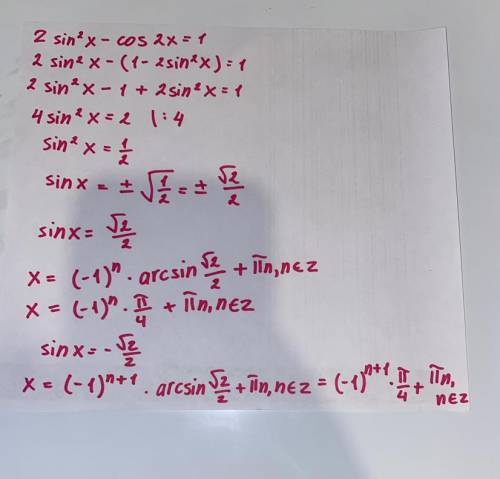 2 sin²x - cos 2x = 1
2 sin²x - (1 - 2sin²x) = 1
2 sin²x - 1 + 2sin²x = 1
4 sin²x = 2 | : 4
sin²x = 1/2
sin x = ± √(1/2) = ± √2/2
sin x = √2/2
x = (-1)ⁿ · arcsin √2/2 + πn, n∈z
x = (-1)ⁿ · π/4 + πn, n∈z
sin x = - √2/2
x = (-1)ⁿ⁺¹ · arcsin √2/2 + πn, n∈z = (-1)ⁿ⁺¹ · π/4 + πn, n∈z